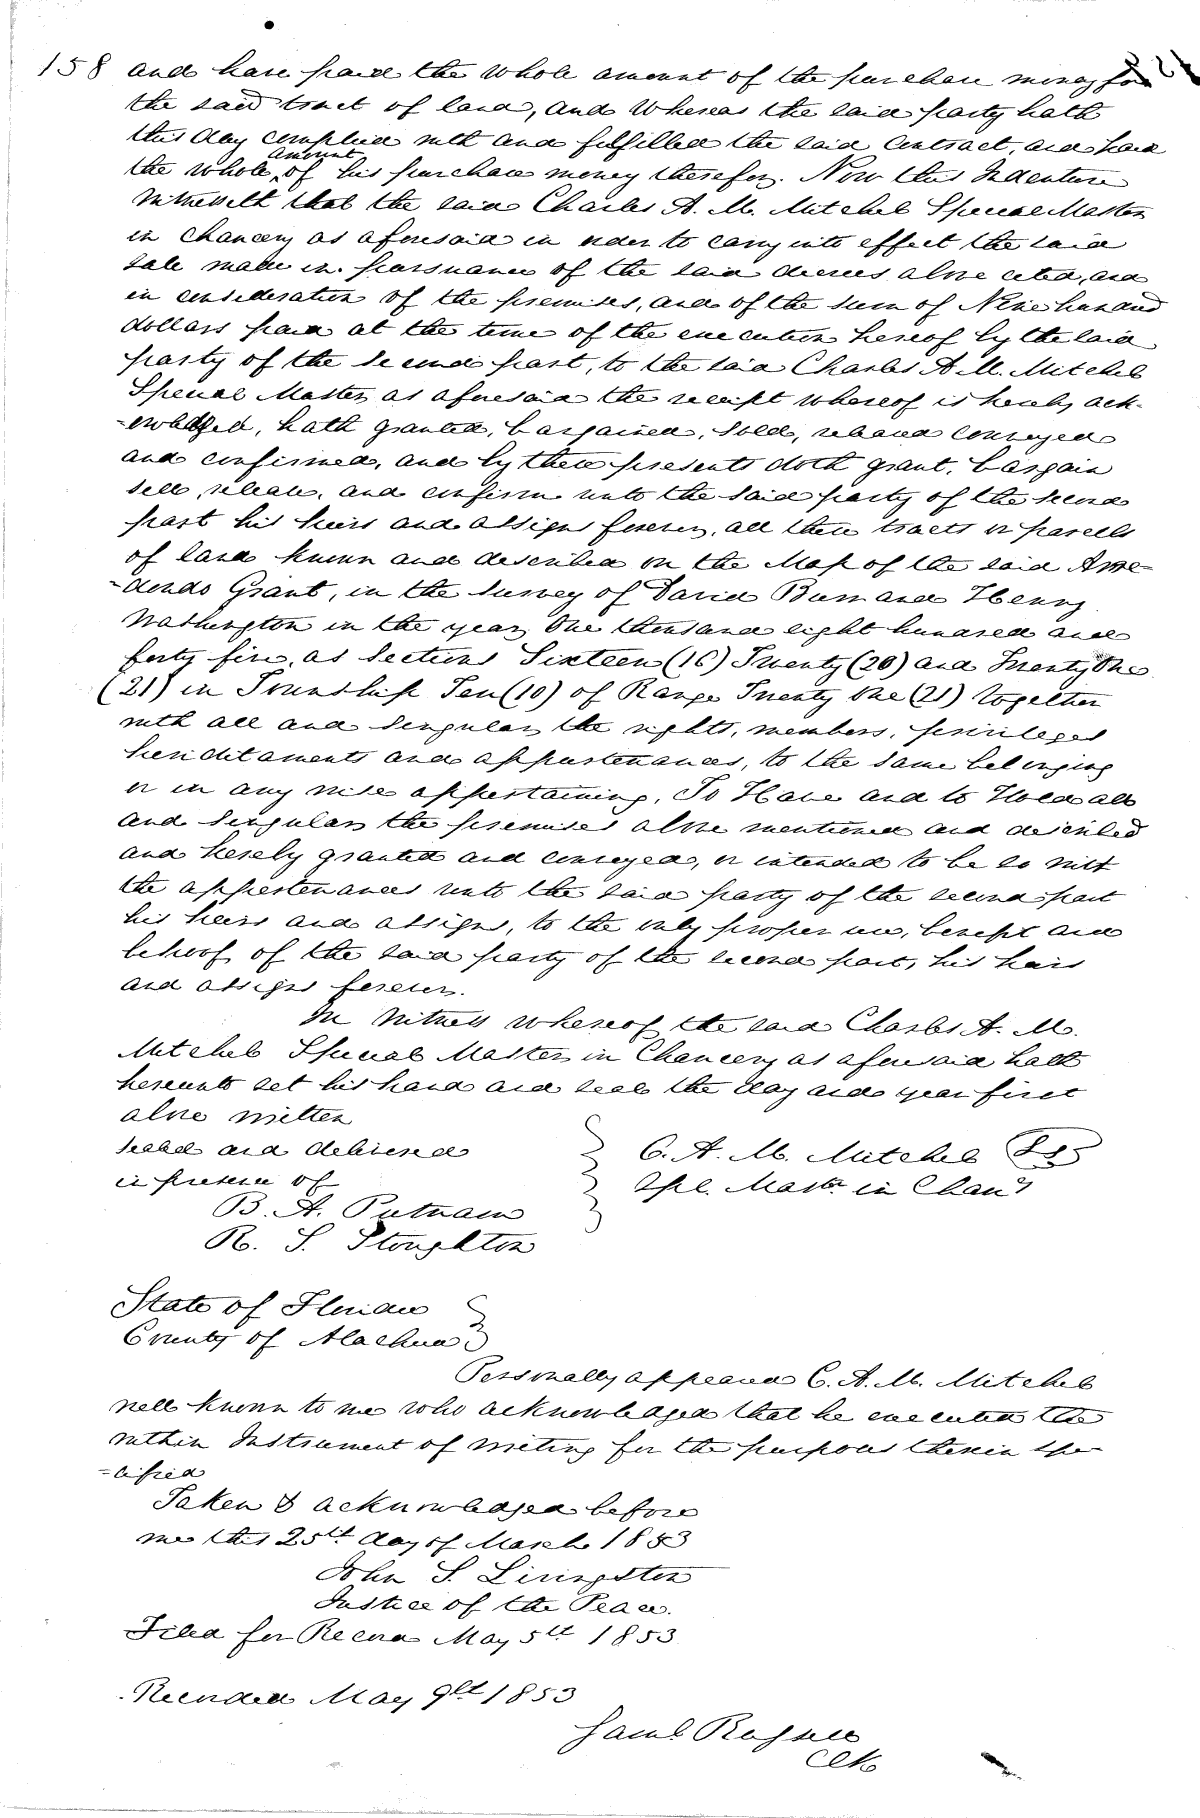 158 and have paid the whole amount of the purchase money for
the said tract of land, and Whereas the said party hath
this day complied with and fulfilled the said Contract, and paid
the whole amount of his purchase money therefor. Now this Indenture
Witnesseth that the said Charles A. M. Mitchel Special Master
in Chancery as aforesaid in order to carry into effect the said
sale made in pursuance of the said decrees above cited, and
in consideration of the premises, and of the sum of Nine hundred
dollars paid at the time of the execution hereof by the said
party of the second part, to the said Charles A. M. Mitchel
Special Master as aforesaid the receipt whereof is hereby ack-
-nowledged, hath granted, bargained, sold, released conveyed
and confirmed, and by these presents doth grant, bargain
sell, release, and confirm unto the said party of the second
part his heirs and assigns forever, all those tracts or parcels
of land known and described on the Map of the said Arre-
-dondo Grant, in the survey of David Burr and Henry
Washington in the year One thousand eight hundred and
forty five, as Sections Sixteen (16) Twenty (20) and Twenty One
(21) in Township Ten (10) of Range Twenty One (21) together
with all and singular the rights, members, privileges
hereditaments and appurtenances, to the same belonging
or in any wise appertaining, To Have and to Hold all
and singular the premises above mentioned and described
and hereby granted and conveyed, or intended to be so with
the appurtenances unto the said party of the second part
his heirs and assigns, to the only proper use, benefit and
behoof of the said party of the second part, his heirs
and assigns forever.
In Witness whereof the said Charles A. M.
Mitchel Special Master in Chancery as aforesaid hath
hereunto set his hand and seal the day and year first
above written
Sealed and delivered
in presence of
C. A. M. Mitchel
Spl. Mastr in Chany
B. A. Putnam
R. S. Stoughton
State of Florida
County of Alachua
Personally appeared C. A. M. Mitchel
well known to me who acknowledged that he executed the
within Instrument of writing for the purposes therein spe
-cified
Taken & acknowledged before
me this 25th day of March 1853
John S. Livingston
Justice of the Peace.
Filed for Record May 5th 1853
Recorded May 9th 1853
Saml Russell
Clk